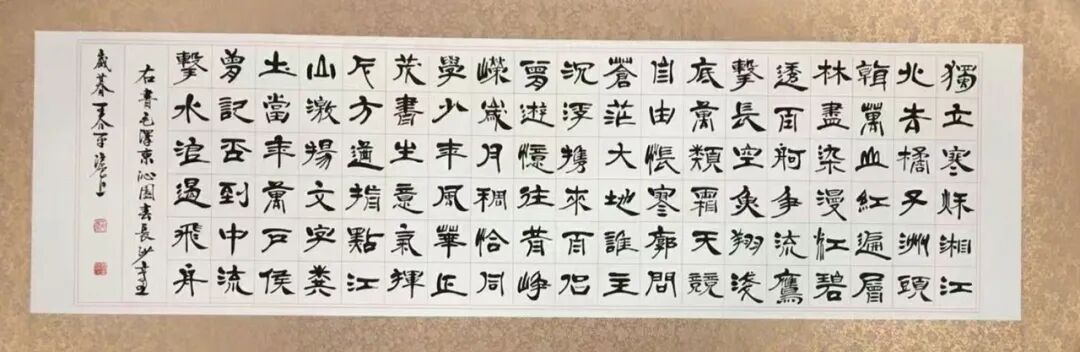 獨立寒秌湘江
北去橘子洲頭
看萬山紅遍層
林盡染漫江碧
透百舸争流鷹
擊長空魚翔淺
底萬類霜天競
自由悵寥廓問
蒼茫大地誰主
沉浮携來百侣
曾遊憶往昔崢
嶸歲月稠恰同
學少年風華正
茂書生意氣揮
斥方遒指點江
山激揚文字糞
土當年萬户侯
曾記否到中流
擊水浪遏飛舟
右書毛澤東沁園春長沙辛丑
歲暮王春平滬上